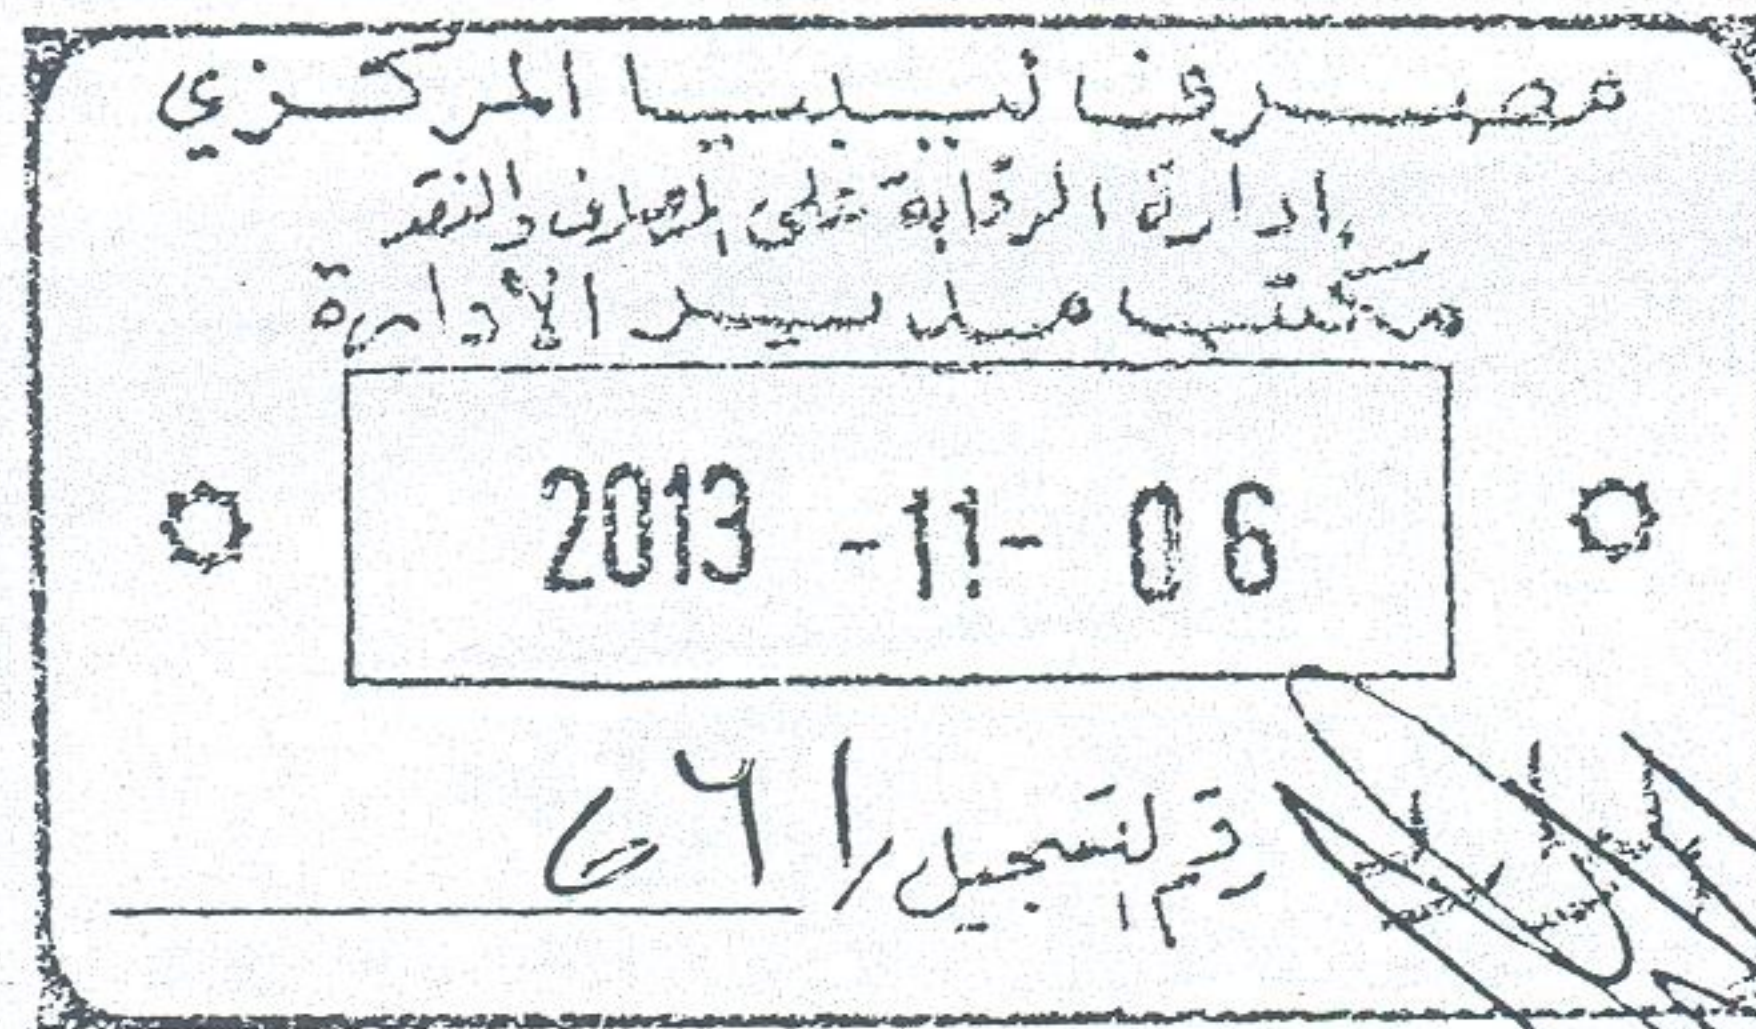 مصرف ليبيا المركزي
إدارة الرقابة على المصارف والنقد
مكتب مدير الإدارة
2013 -11- 06
رقم التسجيل